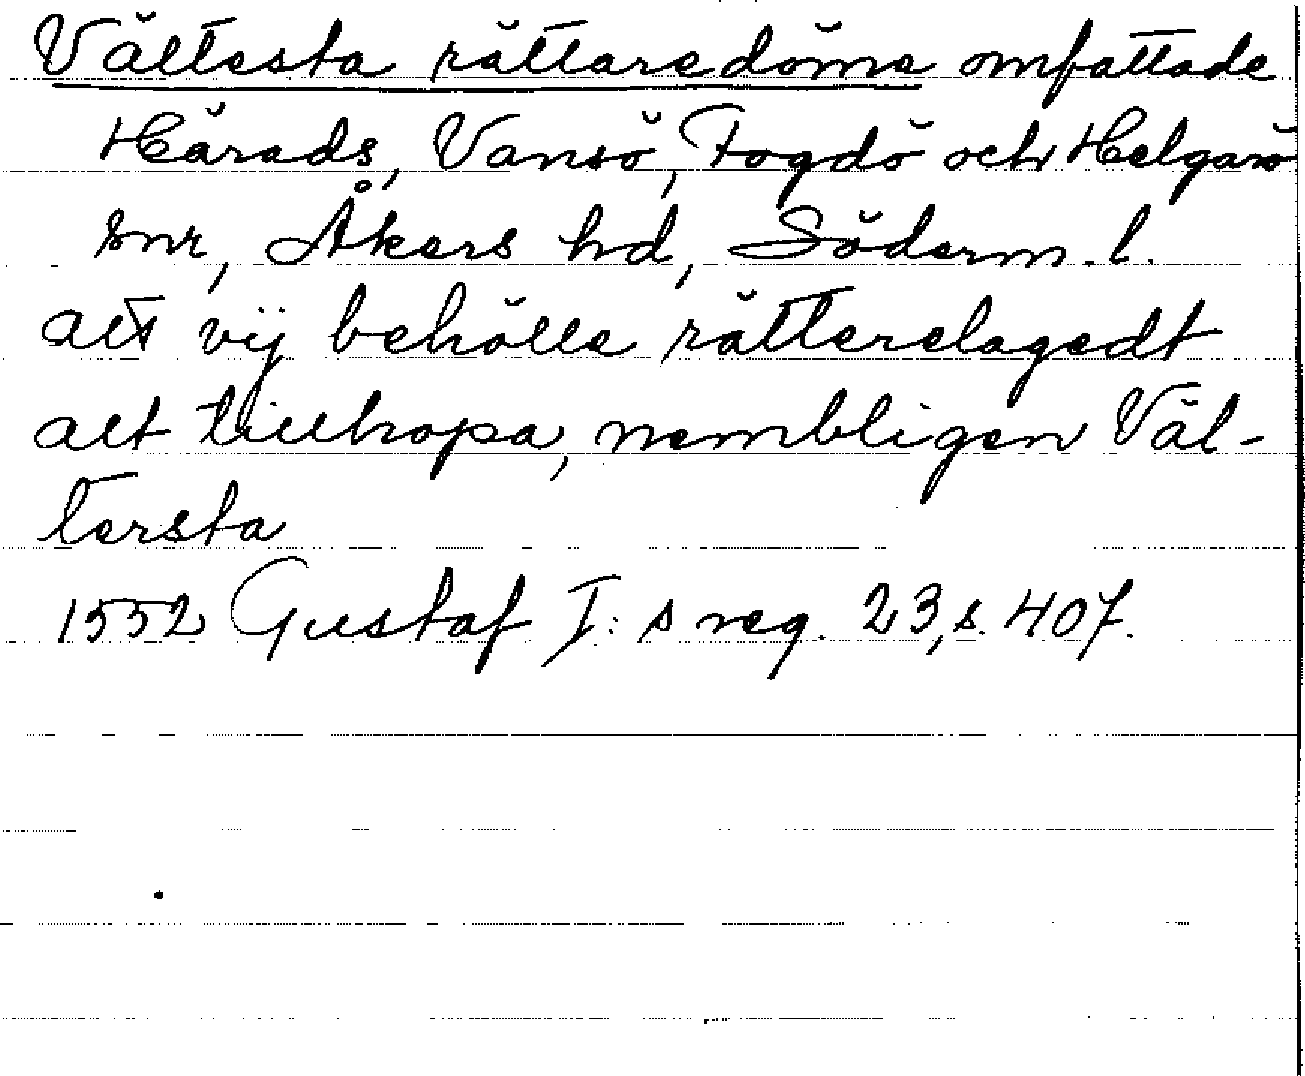 Vältesta rättaredöme omfattade
Härads, Vansö, Fogdö och Helgarö
snr, Åkers hd, Söderm. l.
att vij behölle rätterelagedt
alt tillhopa, nembligen Väl-
tersta
1552 Gustaf I: s reg. 23, s. 407.